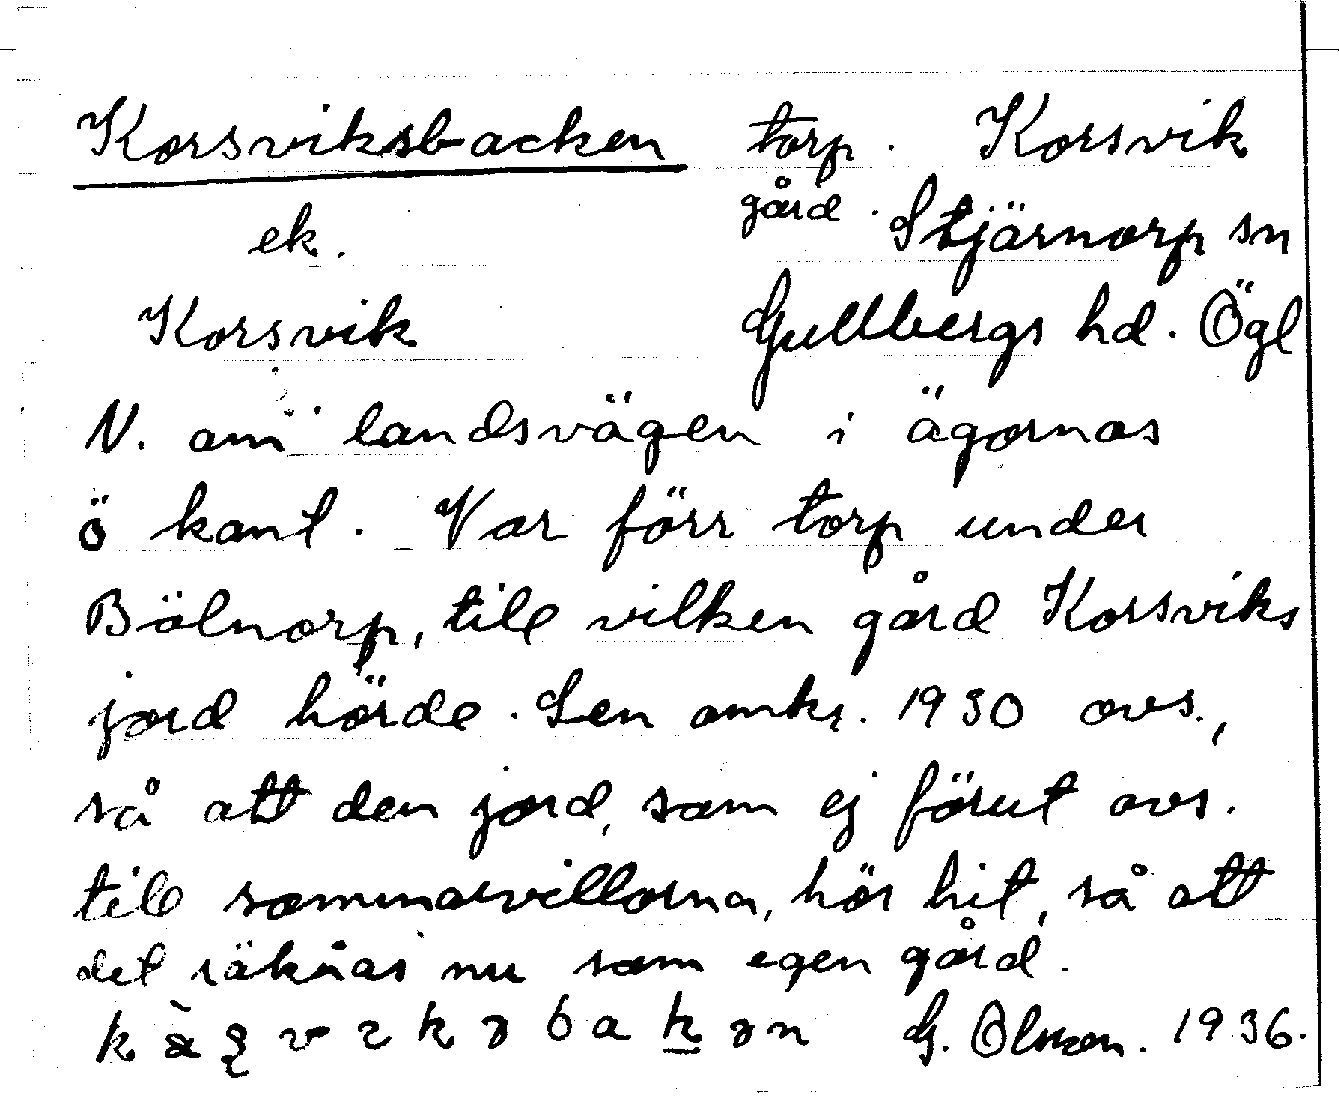 Korsviksbacken torp. Korsvik
ek. gård. Stjärnorp sn
Korsvik Gullbergs hd. Ögl
N. om landsvägen i ägornas
ö kant. Var förr torp under
Bölnorp, till vilken gård Korsviks
jord hörde. Sen omkr. 1930 avs.,
så att den jord, som ej förut avs.
till sommarvillorna, hör hit, så att
det räknas nu som egen gård.
G. Olson. 1936.